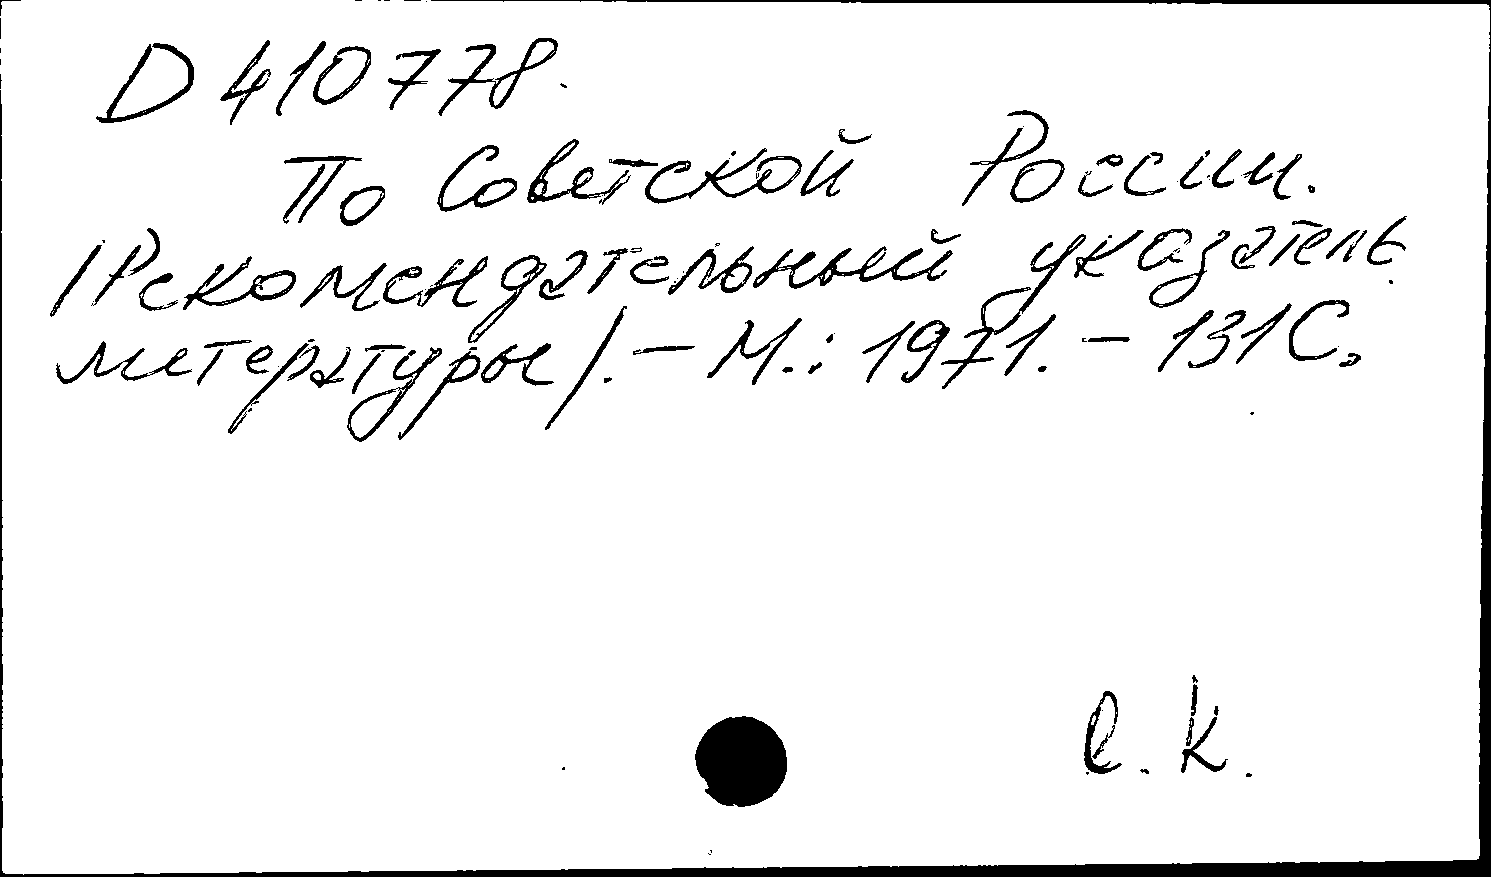 D 410778.
По Советской России.
/Рекомендательный указатель
литературы/. – М.: 1971. – 131 С.
С. К.